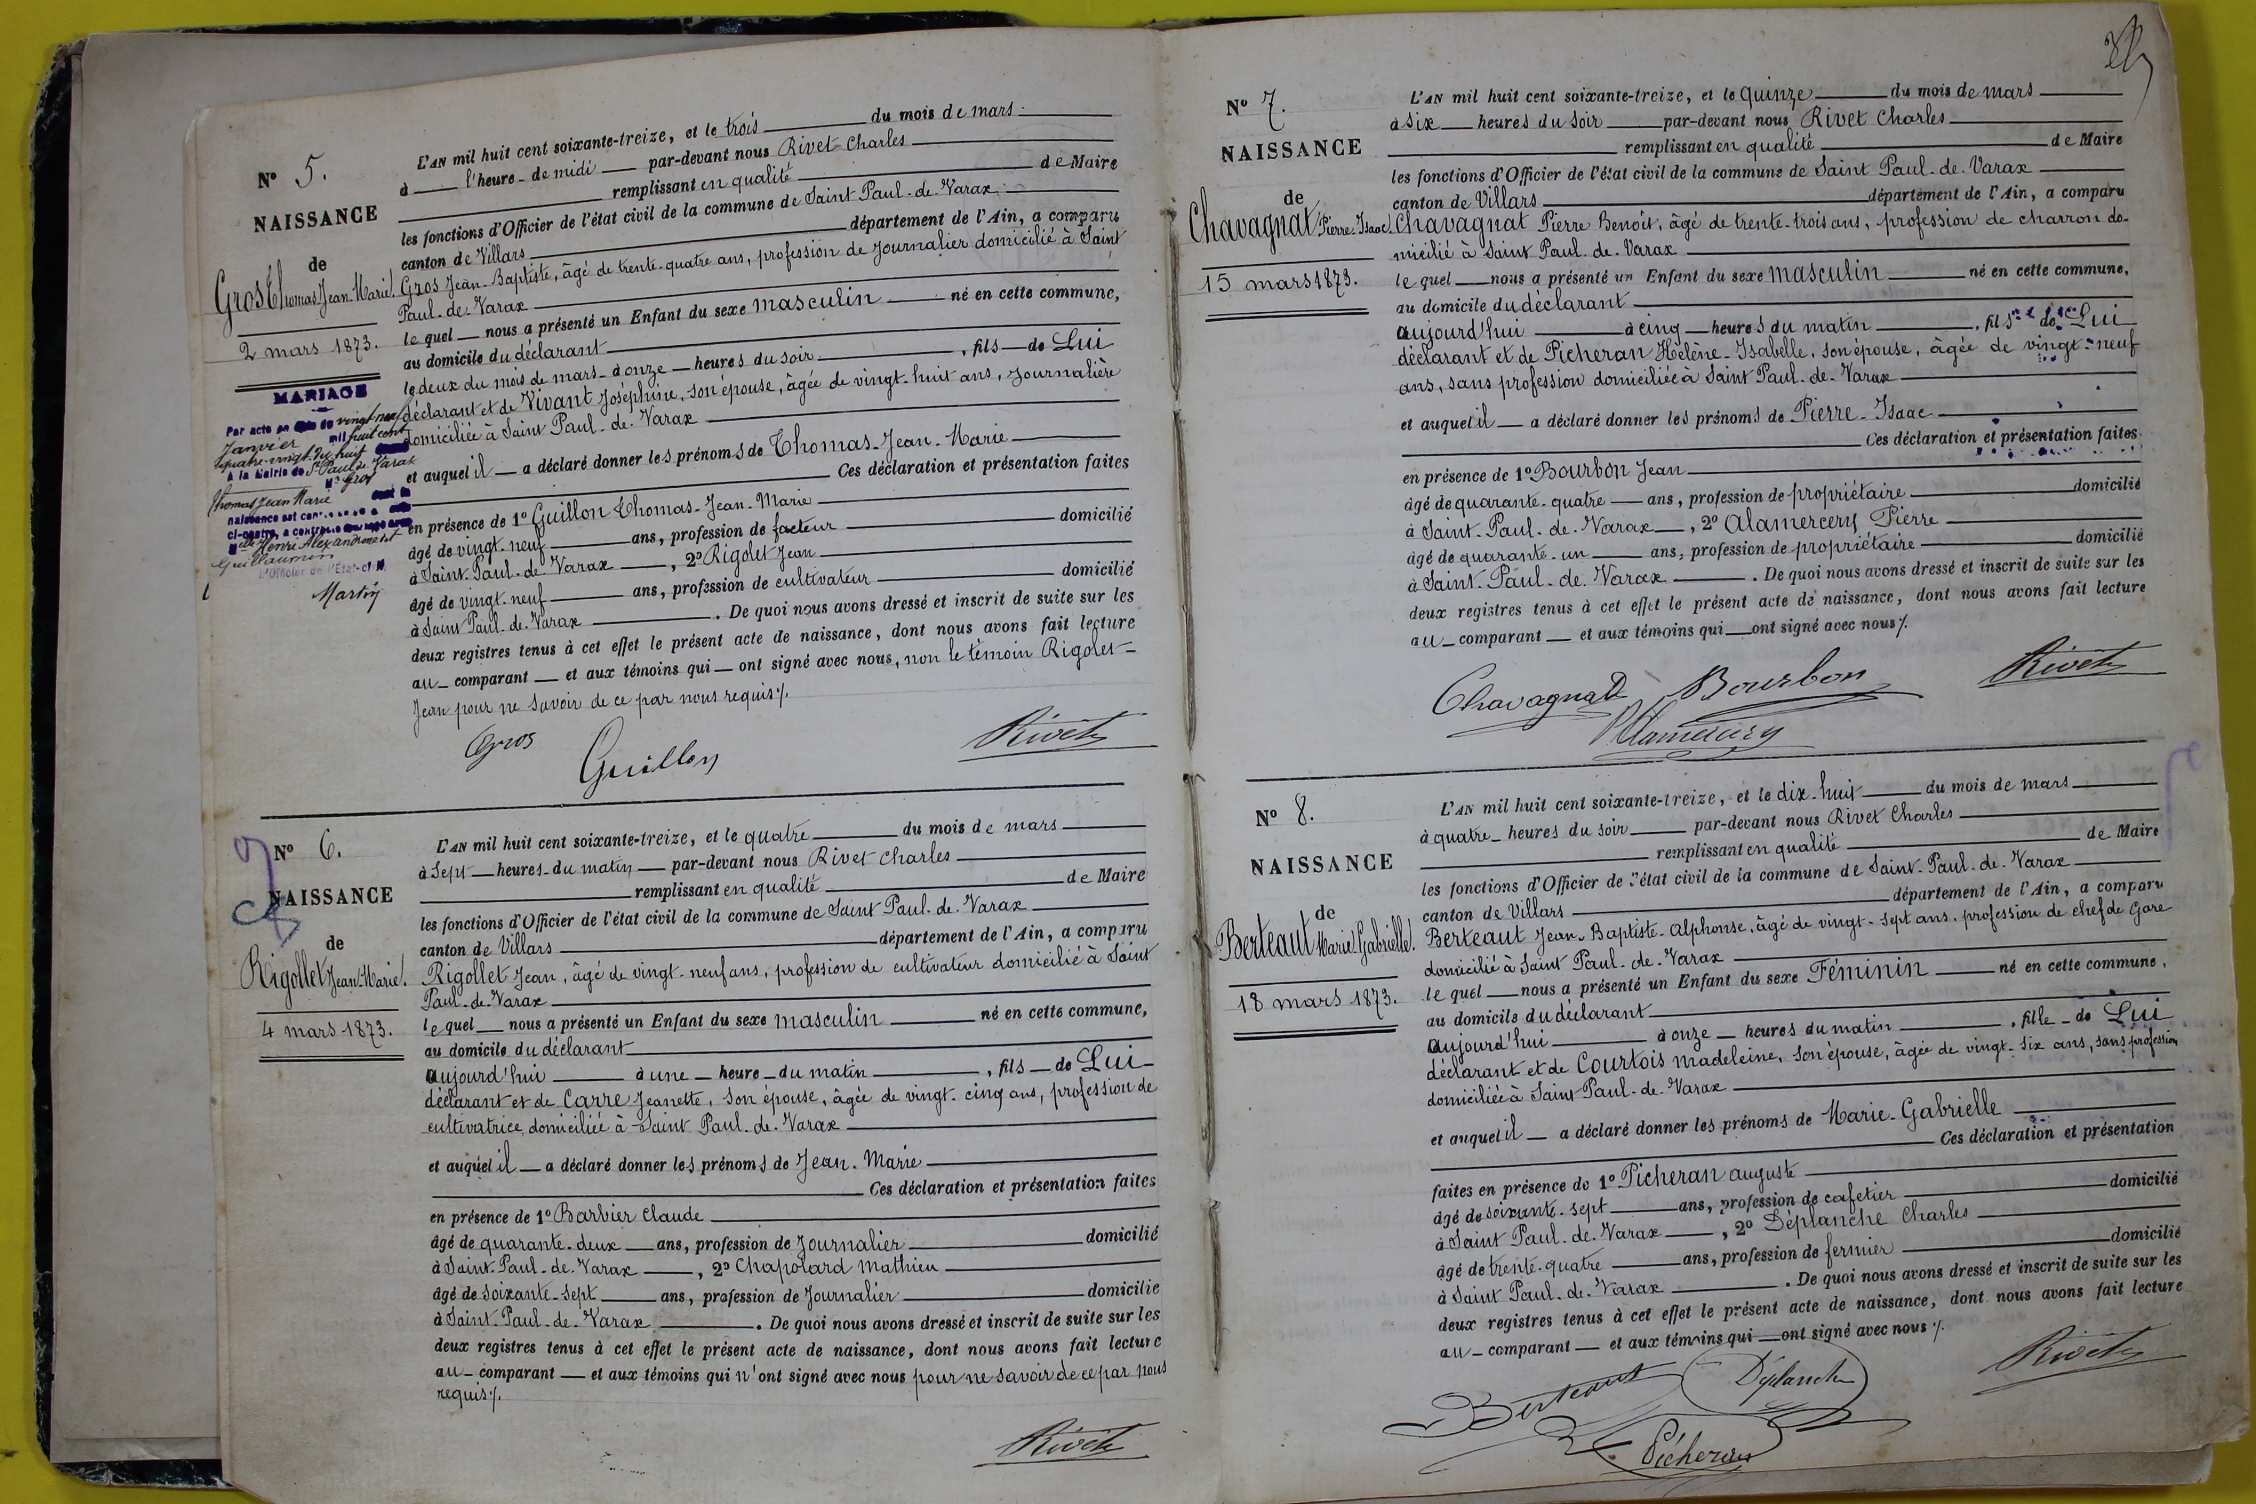 N° 5.
NAISSANCE
de
Gros Thomas Jean-Marie.
2 mars 1873.
MARIAGE
Par acte en du vingt-neuf
Janvier mil huit cent
quatre-vingt-dix huit
à la Mairie de St Paul de Varax
Mr Gros
Thomas Jean Marie dont la
naissance est
ci-contre, a contracté mariage avec
Melle Henri Alexandrine
Guillaumin
L'Officier de l'État-civil
Martin
L'AN mil huit cent soixante-treize, et le trois du mois de mars
à l'heure de midi par-devant nous Rivet Charles
remplissant en qualité de Maire
les fonctions d'Officier de l'état civil de la commune de Saint Paul-de-Varax
canton de Villars département de l'Ain, a comparu
Gros Jean-Baptiste, âgé de trente-quatre ans, profession de Journalier domicilié à Saint
Paul-de-Varax
le quel nous a présenté un Enfant du sexe masculin né en cette commune,
au domicile du déclarant
le deux du mois de mars à onze heures du soir, fils de Lui
déclarant et de Vivant Joséphine, son épouse, âgée de vingt-huit ans, Journalière
domiciliée à Saint Paul-de-Varax
et auquel il a déclaré donner les prénoms de Thomas-Jean-Marie
Ces déclaration et présentation faites
en présence de 1° Guillon Thomas-Jean-Marie
âgé de vingt-neuf ans, profession de facteur domicilié
à Saint-Paul-de-Varax, 2° Rigolet Jean
âgé de vingt-neuf ans, profession de cultivateur domicilié
à Saint Paul-de-Varax. De quoi nous avons dressé et inscrit de suite sur les
deux registres tenus à cet effet le présent acte de naissance, dont nous avons fait lecture
au comparant et aux témoins qui ont signé avec nous, non le témoin Rigolet
Jean pour ne savoir de ce par nous requis ./.
Gros
Guillon
Rivet
N° 6.
NAISSANCE
de
Rigollet Jean-Marie.
4 mars 1873.
L'AN mil huit cent soixante-treize, et le quatre du mois de mars
à Sept heures du matin par-devant nous Rivet Charles
remplissant en qualité de Maire
les fonctions d'Officier de l'état civil de la commune de Saint Paul-de-Varax
canton de Villars département de l'Ain, a comparu
Rigollet Jean, âgé de vingt-neuf ans, profession de cultivateur domicilié à Saint
Paul-de-Varax
le quel nous a présenté un Enfant du sexe masculin né en cette commune,
au domicile du déclarant
aujourd'hui à une heure du matin, fils de Lui
déclarant et de Carre Jeanette, son épouse, âgée de vingt-cinq ans, profession de
cultivatrice domiciliée à Saint Paul-de-Varax
et auquel il a déclaré donner les prénoms de Jean-Marie
Ces déclaration et présentation faites
en présence de 1° Barbier Claude
âgé de quarante-deux ans, profession de Journalier domicilié
à Saint-Paul-de-Varax, 2° Chapolard Mathieu
âgé de soixante-sept ans, profession de Journalier domicilié
à Saint-Paul-de-Varax. De quoi nous avons dressé et inscrit de suite sur les
deux registres tenus à cet effet le présent acte de naissance, dont nous avons fait lecture
au comparant et aux témoins qui n'ont signé avec nous pour ne savoir de ce par nous
requis ./.
Rivet
N° 7.
NAISSANCE
de
Chavagnat Pierre-Isaac.
15 mars 1873.
L'AN mil huit cent soixante-treize, et le quinze du mois de mars
à six heures du soir par-devant nous Rivet Charles
remplissant en qualité de Maire
les fonctions d'Officier de l'état civil de la commune de Saint Paul-de-Varax
canton de Villars département de l'Ain, a comparu
Chavagnat Pierre Benoît, âgé de trente-trois ans, profession de charron do-
micilié à Saint Paul-de-Varax
le quel nous a présenté un Enfant du sexe masculin né en cette commune,
au domicile du déclarant
aujourd'hui à cinq heures du matin, fils de Lui
déclarant et de Picheran Hélène-Isabelle, son épouse, âgée de vingt-neuf
ans, sans profession domiciliée à Saint Paul-de-Varax
et auquel il a déclaré donner les prénoms de Pierre-Isaac
Ces déclaration et présentation faites
en présence de 1° Bourbon Jean
âgé de quarante-quatre ans, profession de propriétaire domicilié
à Saint-Paul-de-Varax, 2° Alamercery Pierre
âgé de quarante-un ans, profession de propriétaire domicilié
à Saint-Paul-de-Varax. De quoi nous avons dressé et inscrit de suite sur les
deux registres tenus à cet effet le présent acte de naissance, dont nous avons fait lecture
au comparant et aux témoins qui ont signé avec nous ./.
Chavagnat
Bourbon
Rivet
Alamercery
N° 8.
NAISSANCE
de
Berteaut Marie-Gabrielle.
18 mars 1873.
L'AN mil huit cent soixante-treize, et le dix-huit du mois de mars
à quatre heures du soir par-devant nous Rivet Charles
remplissant en qualité de Maire
les fonctions d'Officier de l'état civil de la commune de Saint-Paul-de-Varax
canton de Villars département de l'Ain, a comparu
Berteaut Jean-Baptiste-Alphonse, âgé de vingt-sept ans, profession de chef de Gare
domicilié à Saint Paul-de-Varax
le quel nous a présenté un Enfant du sexe Féminin né en cette commune,
au domicile du déclarant
aujourd'hui à onze heures du matin, fille de Lui
déclarant et de Courtois madeleine, son épouse, âgée de vingt-six ans, sans profession
domiciliée à Saint Paul-de-Varax
et auquel il a déclaré donner les prénoms de Marie-Gabrielle
Ces déclaration et présentation
faites en présence de 1° Picheran auguste
âgé de soixante-sept ans, profession de cafetier domicilié
à Saint Paul-de-Varax, 2° Déplanche Charles
âgé de trente-quatre ans, profession de fermier domicilié
à Saint Paul-de-Varax. De quoi nous avons dressé et inscrit de suite sur les
deux registres tenus à cet effet le présent acte de naissance, dont nous avons fait lecture
au comparant et aux témoins qui ont signé avec nous ./.
Berteaut
Déplanche
Rivet
Picheran